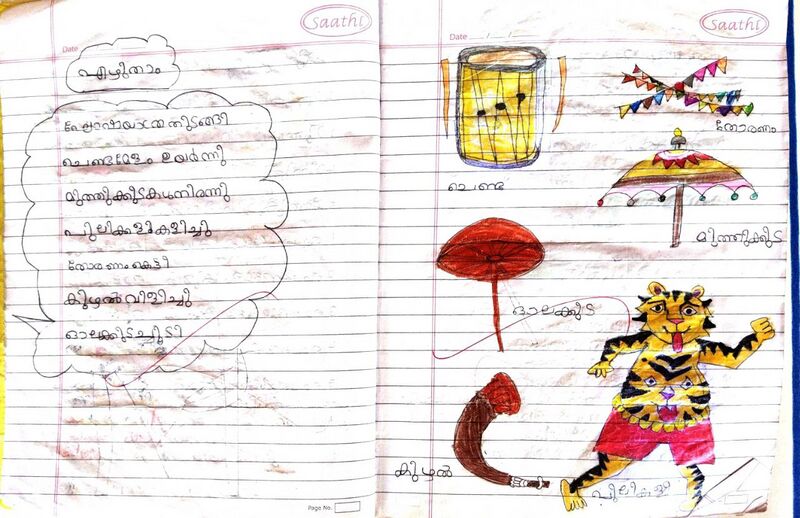 Saathi
Date
എഴുതാം
ഘോഷയാത്ര തുടങ്ങി
ചെണ്ടമേളം ഉയർന്നു
മുത്തുക്കുടകൾ നിരന്നു
പുലിക്കളി കളിച്ചു
തോരണം കെട്ടി
കുഴൽ വിളിച്ചു
ഓലക്കുട ചൂടി
Page No.
Saathi
Date
തോരണം
ചെണ്ട
മുത്തുക്കുട
ഓലക്കുട
കുഴൽ
പുലികളി